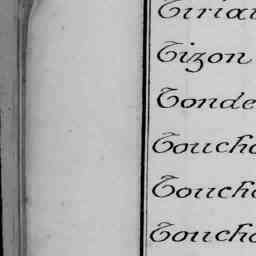 Tiria
Tizon
Tonde
Touch
Touch
Touch